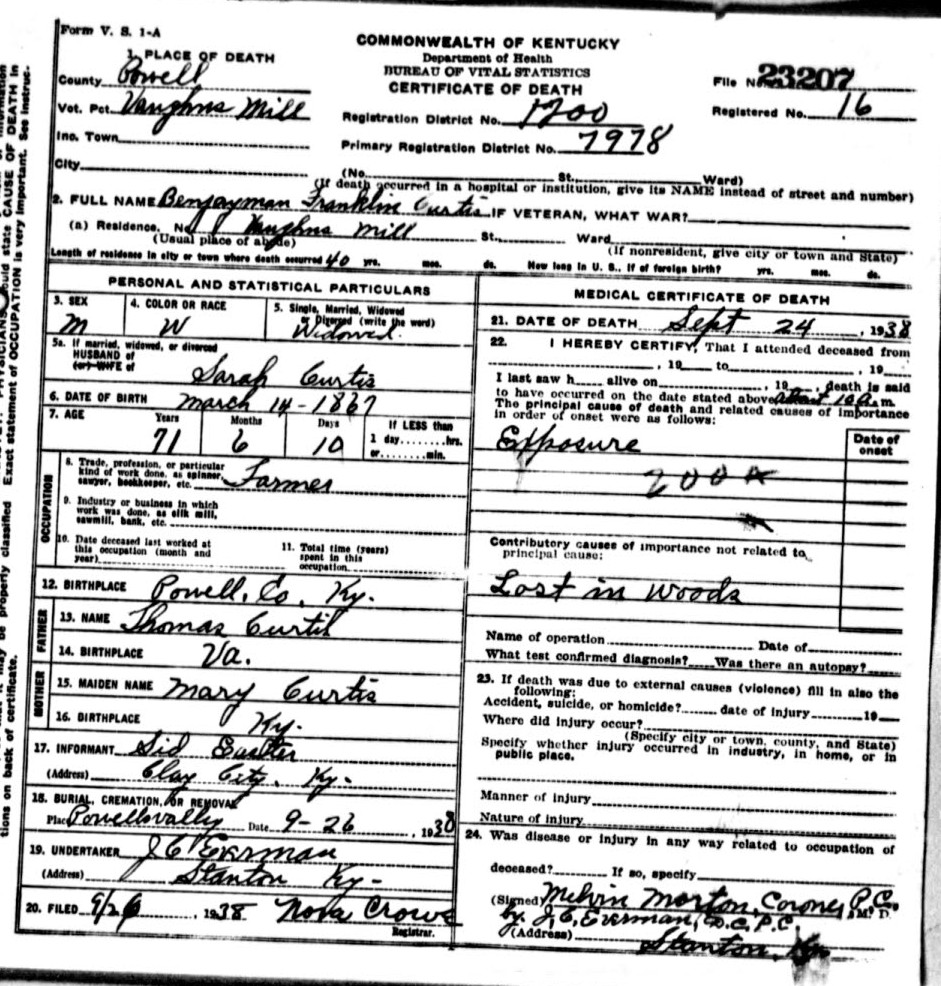 Form V. S. 1-A
COMMONWEALTH OF KENTUCKY
Department of Health
BUREAU OF VITAL STATISTICS
CERTIFICATE OF DEATH
File No. 23207
Registered No. 16
1. PLACE OF DEATH
County Powell
Vot. Pct. Vaughns Mill
Inc. Town
City
Registration District No. 1200
Primary Registration District No. 7978
(No. St. Ward)
(If death occurred in a hospital or institution, give its NAME instead of street and number)
2. FULL NAME Benjayman Franklin Curtis IF VETERAN, WHAT WAR?
(a) Residence, No. Vaughns Mill St. Ward
(Usual place of abode) (If nonresident, give city or town and State)
Length of residence in city or town where death occurred 40 yrs. mos. ds. How long in U. S., if of foreign birth? yrs. mos. ds.
PERSONAL AND STATISTICAL PARTICULARS
3. SEX M
4. COLOR OR RACE W
5. Single, Married, Widowed or Divorced (write the word) Widowed
5a. If married, widowed, or divorced
HUSBAND of
(or) WIFE of Sarah Curtis
6. DATE OF BIRTH March 14-1867
7. AGE Years 71 Months 6 Days 10 If LESS than 1 day hrs. or min.
OCCUPATION
8. Trade, profession, or particular kind of work done, as spinner, sawyer, bookkeeper, etc. Farmer
9. Industry or business in which work was done, as silk mill, sawmill, bank, etc.
10. Date deceased last worked at this occupation (month and year)
11. Total time (years) spent in this occupation
12. BIRTHPLACE Powell, Co, Ky.
FATHER
13. NAME Thomas Curtis
14. BIRTHPLACE Va.
MOTHER
15. MAIDEN NAME Mary Curtis
16. BIRTHPLACE Ky.
17. INFORMANT Sid
(Address) Clay City, Ky-
18. BURIAL, CREMATION, OR REMOVAL
Place Powellsvally Date 9-26, 1938
19. UNDERTAKER J C Everman
(Address) Stanton Ky-
20. FILED 9/26, 1938 Nova Crowe
Registrar.
MEDICAL CERTIFICATE OF DEATH
21. DATE OF DEATH Sept 24, 1938
22. I HEREBY CERTIFY, That I attended deceased from
, 19 to , 19
I last saw h alive on , 19 , death is said
to have occurred on the date stated above about 10 a.m.
The principal cause of death and related causes of importance
in order of onset were as follows:
Date of onset
Exposure
200
Contributory causes of importance not related to
principal cause:
Lost in woods
Name of operation Date of
What test confirmed diagnosis? Was there an autopsy?
23. If death was due to external causes (violence) fill in also the
following:
Accident, suicide, or homicide? date of injury 19
Where did injury occur?
(Specify city or town, county, and State)
Specify whether injury occurred in industry, in home, or in
public place.
Manner of injury
Nature of injury
24. Was disease or injury in any way related to occupation of
deceased? If so, specify
(Signed) Melvin Morton, Coroner, P.C. M. D.
by J. C. Everman, D.C.P.C.
(Address) Stanton, Ky